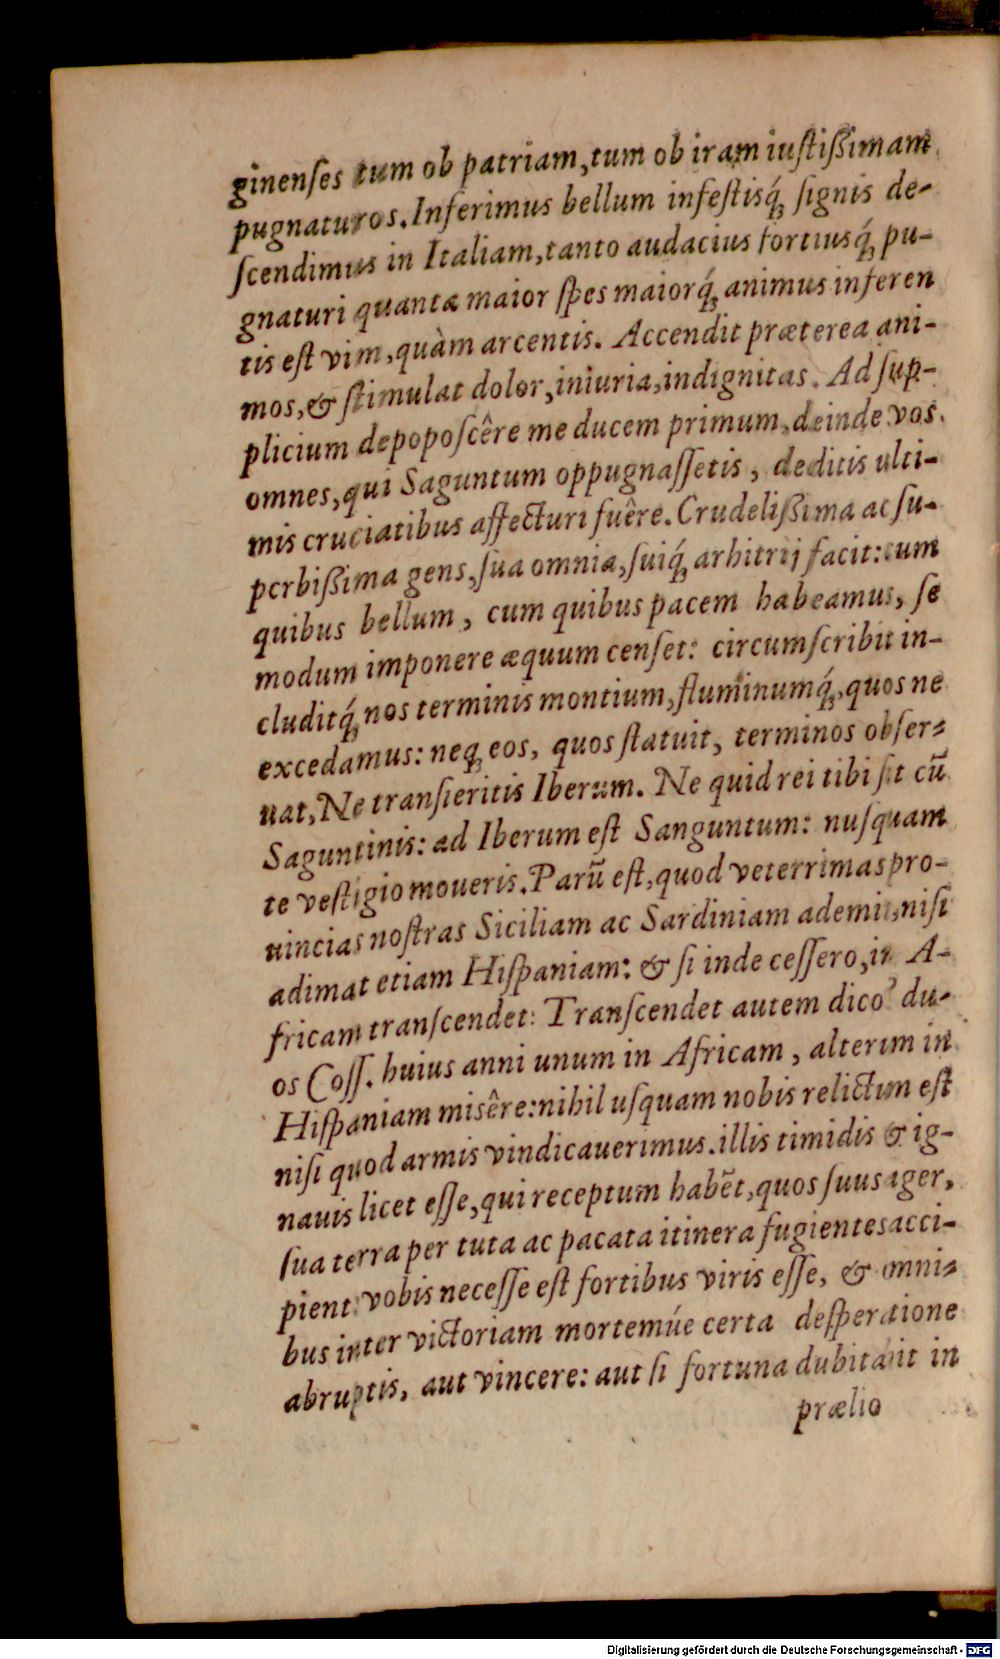 ginenſes tum ob patriam, tum ob iram iuſtißimam
pugnaturos. Inferimus bellum infeſtisq́ꝫ ſignis de-
ſcendimus in Italiam, tanto audacius fortiusq́ꝫ pu-
gnaturi quanta maior ſpes maiorq́ꝫ animus inferen
tis eſt vim, quàm arcentis. Accendit præterea ani-
mos, & ſtimulat dolor, iniuria, indignitas. Ad ſup-
plicium depopoſcêre me ducem primum, deinde vos
omnes, qui Saguntum oppugnaſſetis, deditis ulti-
mis cruciatibus affecturi fuêre. Crudelißima ac ſu-
perbißima gens, ſua omnia, ſuiq́ꝫ arbitrij facit: cum
quibus bellum, cum quibus pacem habeamus, ſe
modum imponere æquum cenſet: circumſcribit in-
cluditq́ꝫ nos terminis montium, fluminumq́ꝫ, quos ne
excedamus: neqꝫ eos, quos ſtatuit, terminos obſer-
uat, Ne tranſieritis Iberum. Ne quid rei tibi ſit cū
Saguntinis: ad Iberum eſt Sanguntum: nuſquam
te veſtigio moueris. Parū eſt, quod veterrimas pro-
uincias noſtras Siciliam ac Sardiniam ademit, niſi
adimat etiam Hiſpaniam: & ſi inde ceſſero, in A-
fricam tranſcendet: Tranſcendet autem dico? du-
os Coſſ. huius anni unum in Africam, alterum in
Hiſpaniam misêre: nihil uſquam nobis relictum eſt
niſi quod armis vindicauerimus. illis timidis & ig-
nauis licet eſſe, qui receptum habēt, quos ſuus ager,
ſua terra per tuta ac pacata itinera fugientes acci-
pient: vobis neceſſe eſt fortibus viris eſſe, & omni-
bus inter victoriam mortemúe certa deſperatione
abruptis, aut vincere: aut ſi fortuna dubitabit in
prælio
Digitalisierung gefördert durch die Deutsche Forschungsgemeinschaft - DFG